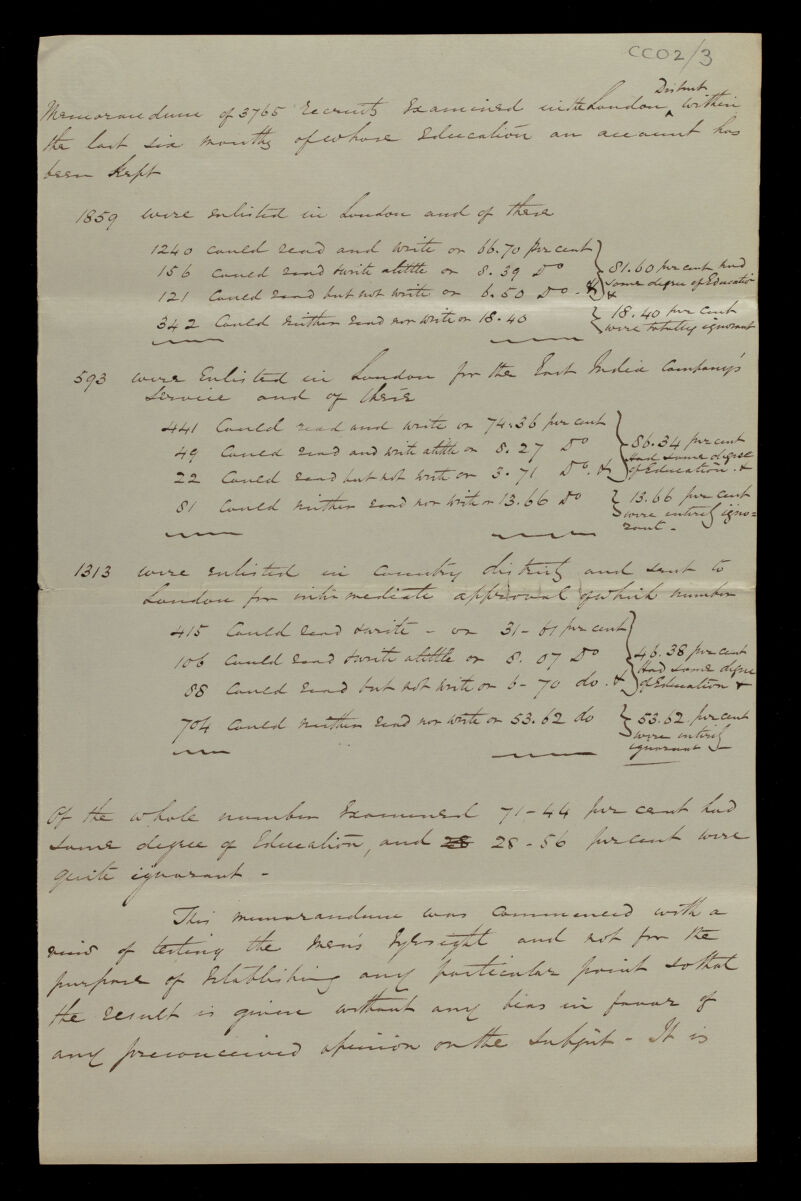 CC02/3
Memorandum of 3765 recruits Examined in the London District within
the last six months of whose Education an account has
been kept
1859 were enlisted in London and of these
1240 could read and write or 66.70 per cent
156 could read & write a little or 8.39 Do
121 Could read but not write or 6.50 Do - &
81.60 per cent had
some degree of Educatio
&
342 Could neither read nor write or 18.40
18.40 per cent
were totally ignorant
593 were Enlisted in London for the East India Company's
Service and of these
441 Could read and write or 74.36 per cent
49 Could read and write a little or 8.27 Do
22 Could read but not write or 3.71 Do. &
86.34 per cent
had some degree
of Education. &
81 Could neither read nor write or 13.66 Do
13.66 per cent
were entirely igno=
rant -
1313 were enlisted in country districts and sent to
London for intermediate approval of which number
415 Could read & write - or 31-61 per cent
106 Could read & write a little or 8.07 Do
88 Could read but not write or 6-70 do. &
46.38 per cent
Had some degree
of Education &
704 Could neither read nor write or 53.62 do
53.62 per cent
were entirely
ignorant
Of the whole number Examined 71-44 per cent had
some degree of Education, and 28 28-56 per cent were
quite ignorant -
This memorandum was commenced with a
view of testing the men's Eyesight and not for the
purpose of Establishing any particular point so that
the result is given without any bias in favor of
any preconceived opinion on the subject - It is